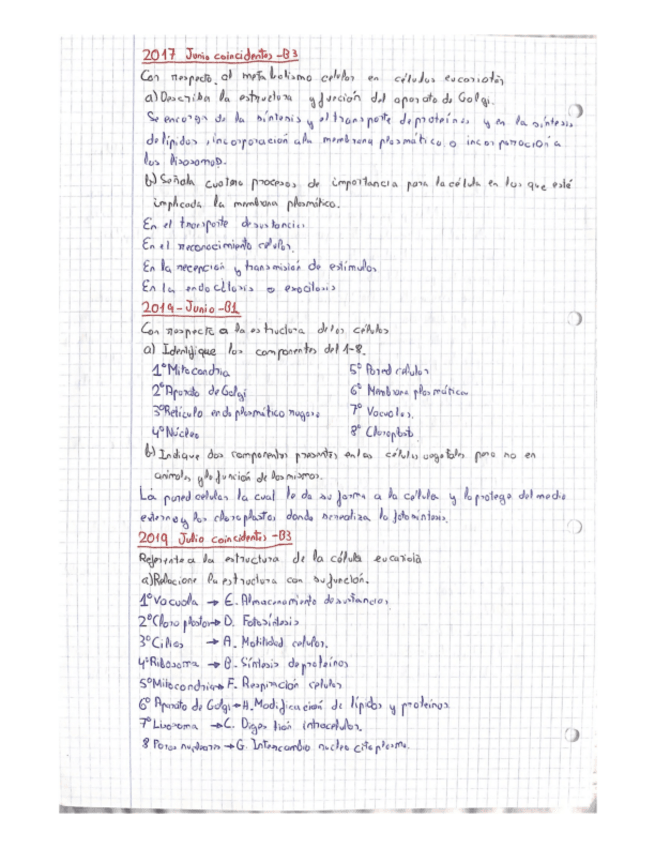 2017 Junio coincidentes - B3
Con respecto al metabolismo celular en células eucariotas
a) Describa la estructura y función del aparato de Golgi.
Se encarga de la síntesis y el transporte de proteínas y en la síntesis
de lípidos, incorporación a la membrana plasmática o incorporación a
los lisosomas.
b) Señala cuatro procesos de importancia para la célula en los que esté
implicada la membrana plasmática.
En el transporte de sustancias
En el reconocimiento celular.
En la recepción y transmisión de estímulos
En la endocitosis o exocitosis
2019 - Junio - B1
Con respecto a la estructura de las células
a) Identifique los componentes del 1-8.
1º Mitocondria 5º Pared celular
2º Aparato de Golgi 6º Membrana plasmática
3º Retículo endoplasmático rugoso 7º Vacuolas.
4º Núcleo 8º Cloroplasto
b) Indique dos componentes presentes en las células vegetales pero no en
animales y la función de los mismos.
La pared celular la cual le da su forma a la célula y la protege del medio
externo y los cloroplastos donde se realiza la fotosíntesis.
2019 Julio coincidentes - B3
Referente a la estructura de la célula eucariota
a) Relacione la estructura con su función.
1º Vacuola → E. Almacenamiento de sustancias
2º Cloroplastos → D. Fotosíntesis
3º Cilios → A. Motilidad celular.
4º Ribosoma → B. Síntesis de proteínas
5º Mitocondrias → F. Respiración celular
6º Aparato de Golgi → H. Modificación de lípidos y proteínas
7º Lisosoma → C. Digestión intracelular.
8 Poros nucleares → G. Intercambio nucleo citoplasma.